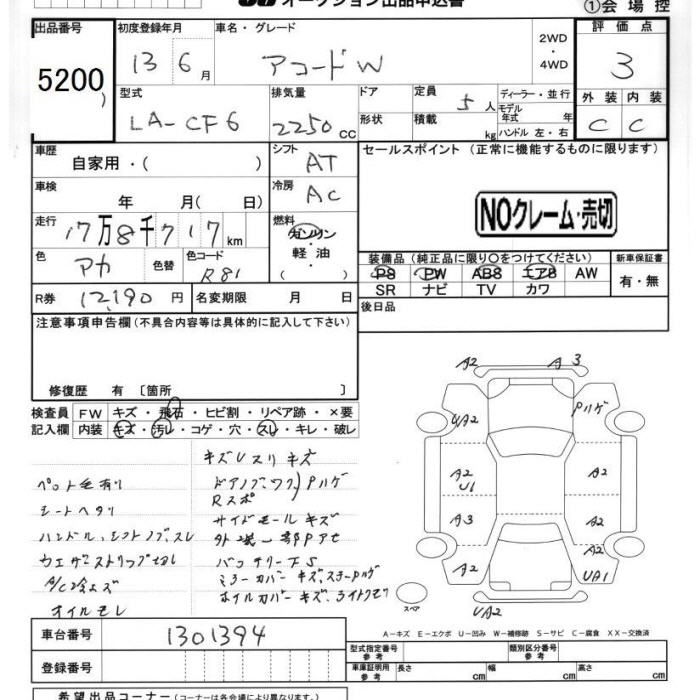 オークション出品申込書
①会場控
出品番号 初度登録年月 車名・グレード 2WD・4WD 評価点
5200 13 6月 アコードW 3
型式 排気量 ドア 定員 5人 ディーラー・並行 外装 内装
LA-CF6 2250cc 形状 積載 kg モデル年式 年式 ハンドル 左・右 C C
車歴 自家用・( ) シフト AT セールスポイント (正常に機能するものに限ります)
車検 年 月( 日) 冷房 AC
NOクレーム・売切
走行 17万8千717km 燃料 ガソリン・軽油・( )
色 アカ 色替 色コード R81 装備品 (純正品に限り○をつけてください) 新車保証書
PS PW ABS エアB AW 有・無
R券 12,190円 名変期限 月 日 SR ナビ TV カワ
注意事項申告欄(不具合内容等は具体的に記入して下さい) 後日品
修復歴 有 〔箇所 〕
検査員 FW キズ・飛石・ヒビ割・リペア跡・×要
記入欄 内装 キズ・汚レ・コゲ・穴・スレ・キレ・破レ
キズUスリキズ
ペット毛有り
シートヘタリ Rスポ
ハンドル、シフトノブスレ サイドモールキズ
ウェザーストリップ 外装一部Pアセ
A/C冷えズ バッテリー
オイルモレ ミラーカバーキズ
ホイルカバーキズ、ライト
A2 A3
UA2 Pハゲ
A2 U1 A2
A3 A2
A2 A2 UA1
スペア UA2
車台番号 1301394
A-キズ E-エクボ U-凹み W-補修跡 S-サビ C-腐食 XX-交換済
登録番号 型式指定番号 参考 類別区分番号 参考
車庫証明用 参考 長さ cm 幅 cm 高さ cm
希望出品コーナー (コーナーは各会場により異なります。)